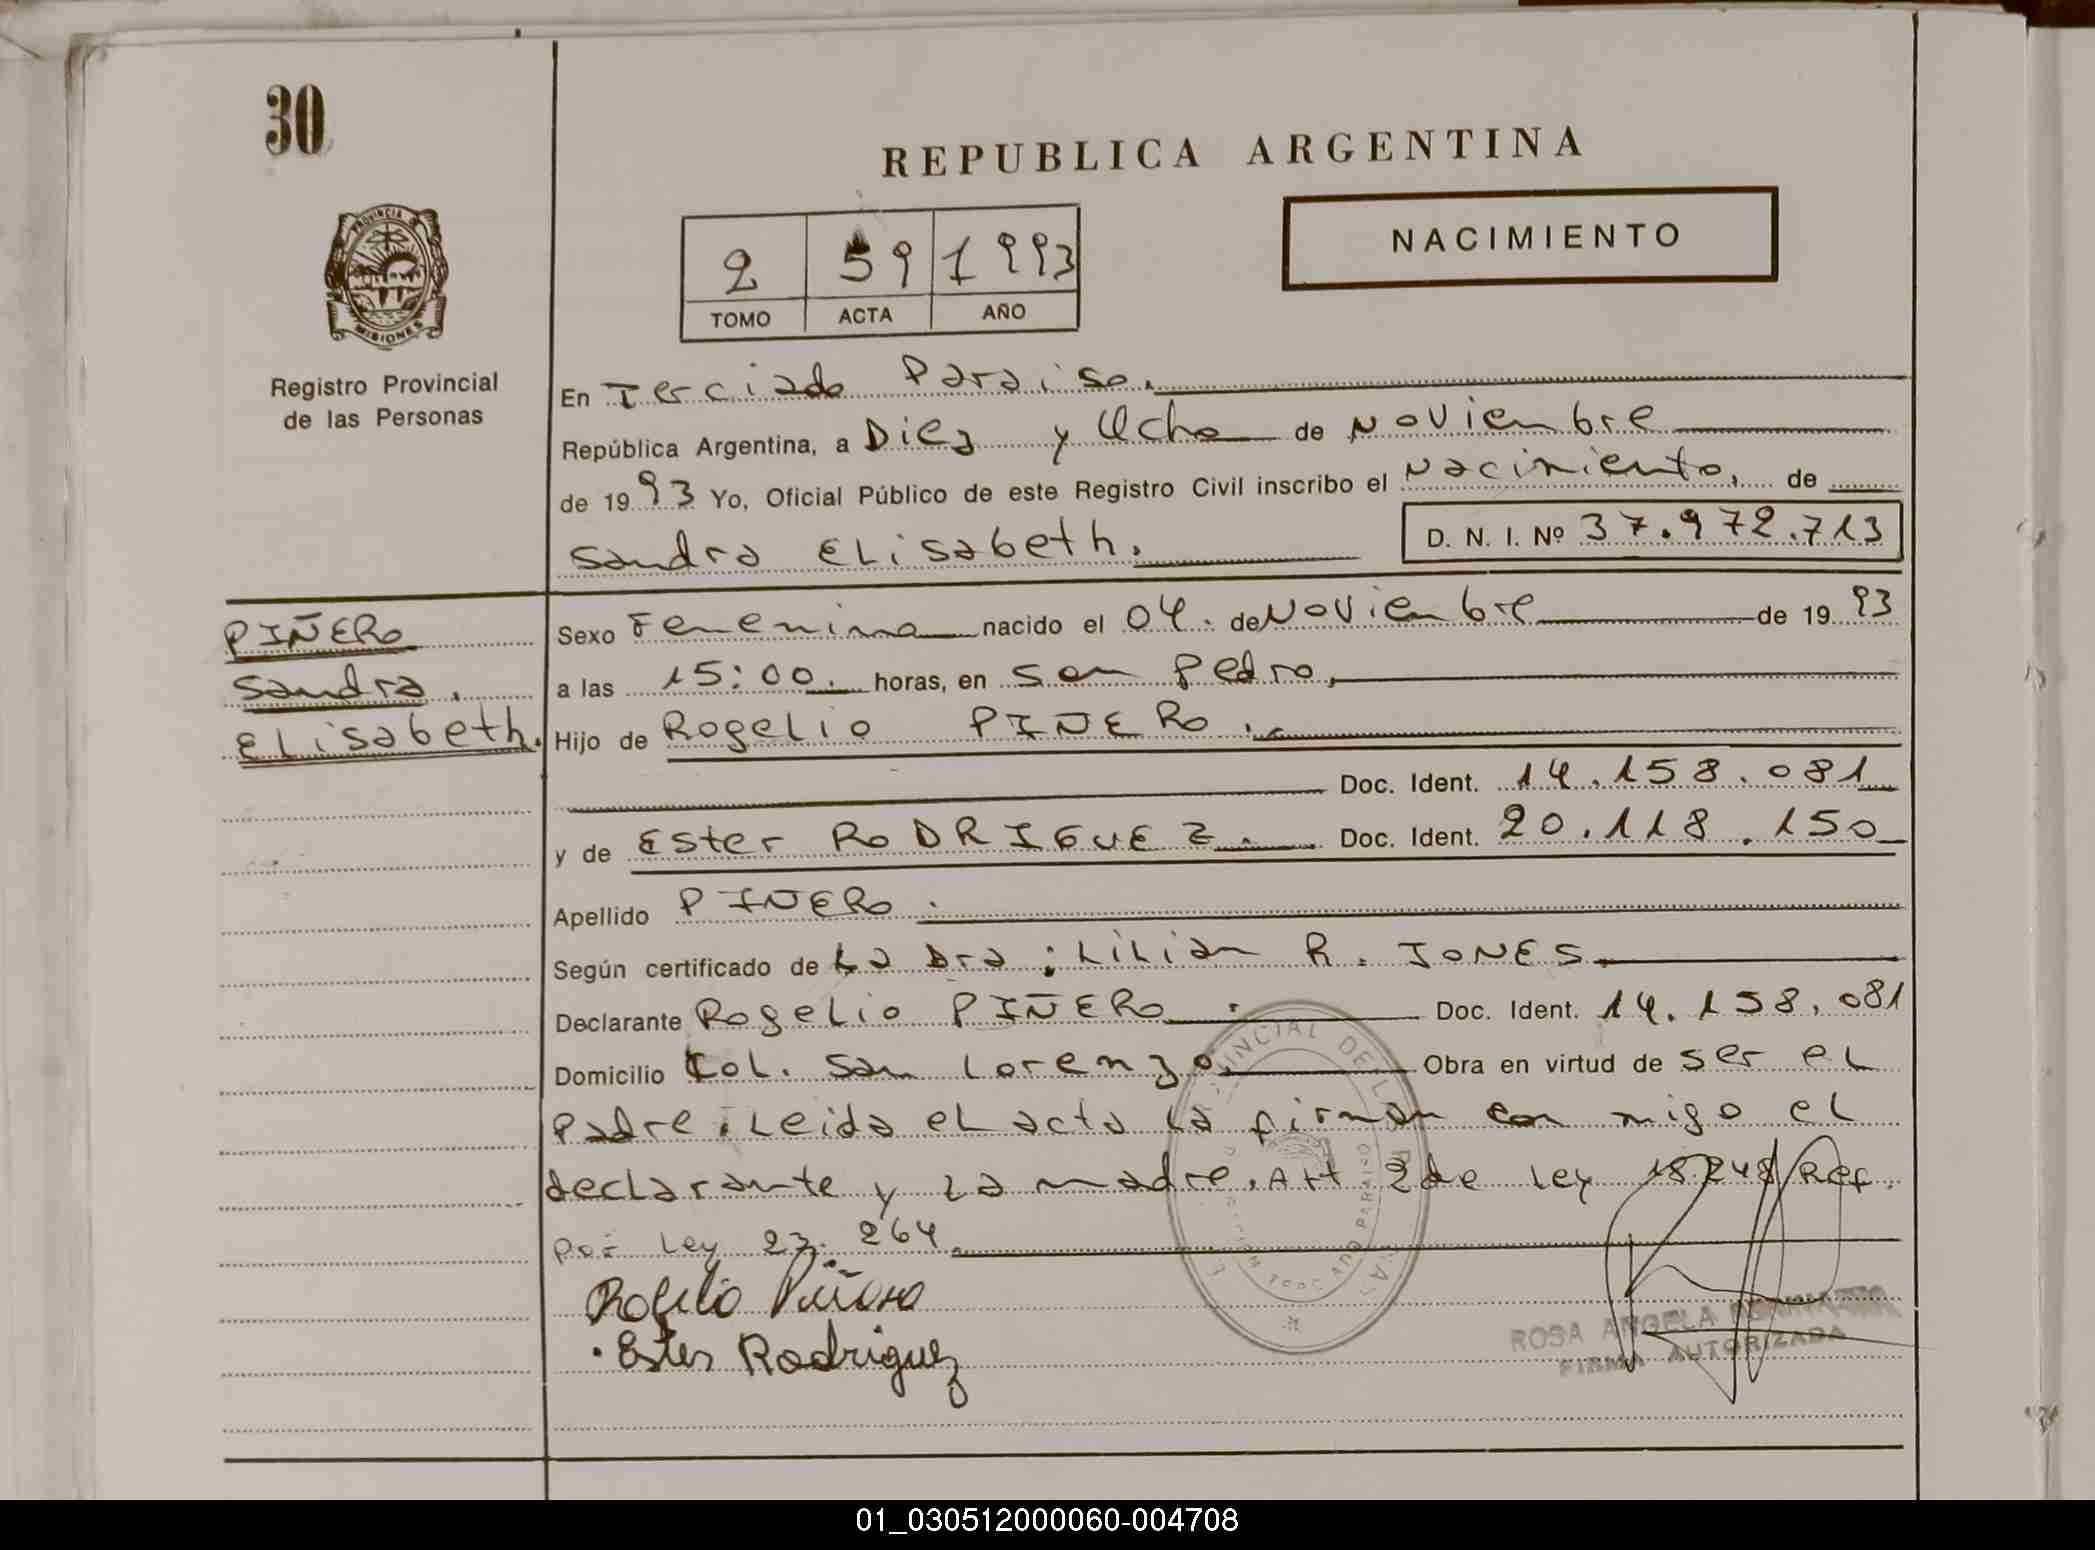 30
REPUBLICA ARGENTINA
NACIMIENTO
PROVINCIA DE
MISIONES
2 59 1993
TOMO ACTA AÑO
Registro Provincial
de las Personas
En Terciado Paraiso.
República Argentina, a Diez y Ocho de Noviembre
de 1993 Yo, Oficial Público de este Registro Civil inscribo el Nacimiento, de
Sandra ELisabeth. D. N. I. Nº 37.972.713
PIÑERO
Sandra.
ELisabeth.
Sexo Femenino nacido el 04. de Noviembre de 1993
a las 15:00. horas, en San Pedro,
Hijo de RogeLio PIÑERO.
Doc. Ident. 14.158.081
y de Ester RODRIGUEZ. Doc. Ident. 20.118.150
Apellido PIÑERO.
Según certificado de La Dra: LiLian R. JONES
Declarante RogeLio PIÑERO. Doc. Ident. 14.158.081
Domicilio CoL. San Lorenzo. Obra en virtud de ser eL
Padre; Leida eL acta La firman con migo eL
declarante y La madre. Art 2 de Ley 18248/Ref.
por Ley 23.264.
Rogelio Piñero
Ester Rodriguez
ROSA ANGELA
FIRMA AUTORIZADA
01_030512000060-004708